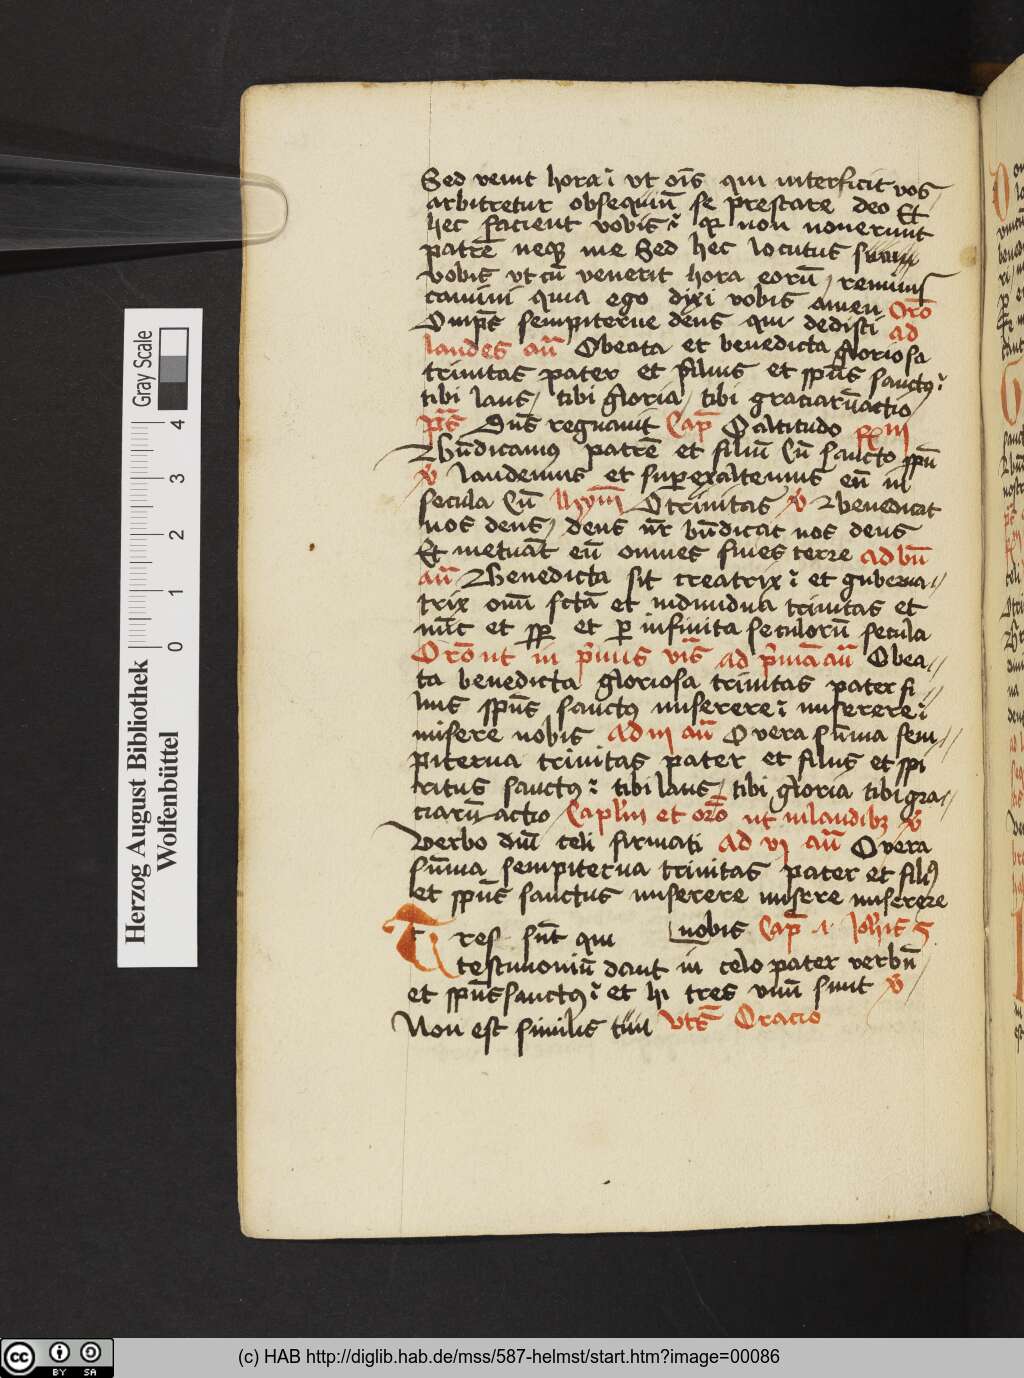 Sed venit hora ut oīs qui interficit vos
arbitretur obsequiū se prestare deo Et
hec facient vobis qꝛ non noverunt
patrē neqꝫ me Sed hec locutus sum
vobis ut cū venerit hora eorū reminis
camini quia ego dixi vobis amen Orō
Omps sempiterne deus qui dedisti ad
laudes an̄ O beata et benedicta gloriosa
trinitas pater et filius et spūs sanctus
tibi laus tibi gloria tibi graciarū actio
ps̄ Dn̄s regnavit Cap̄ O altitudo
Bn̄dicamus patrē et filiū Cū sancto spū
v̄ laudemus et superexaltemus eū in
secula Cū hym̄ O trinitas v̄ Benedicat
nos deus deus nr̄ bn̄dicat nos deus
Et metuāt eū omnes fines terre ad bn̄
an̄ Benedicta sit creatrix et guberna
trix oīm sctā et individua trinitas et
nūc et sp̄ et ꝑ infinita seculorū secula
Orō ut in primis vīs ad primā an̄ O bea
ta benedicta gloriosa trinitas pater fi
lius spūs sanctus miserere miserere
misere nobis ad iii an̄ O vera sūma sem
piterna trinitas pater et filius et spi
ritus sanctus tibi laus tibi gloria tibi gra
ciarū actio Caplm et orō ut in laudibꝫ v̄
Verbo dnī celi firmati ad vi an̄ O vera
sūma sempiterna trinitas pater et filius
et spūs sanctus miserere miserre miserere
nobis Cap̄ 1 Joh̄is 5
Tres sūt qui
testimoniū dant in celo pater verbū
et spūs sanctus et hi tres unū sunt v̄
Non est similis tui uts̄ Oracio
Gray Scale
0 1 2 3 4
Herzog August Bibliothek
Wolfenbüttel
cc BY SA
(c) HAB http://diglib.hab.de/mss/587-helmst/start.htm?image=00086